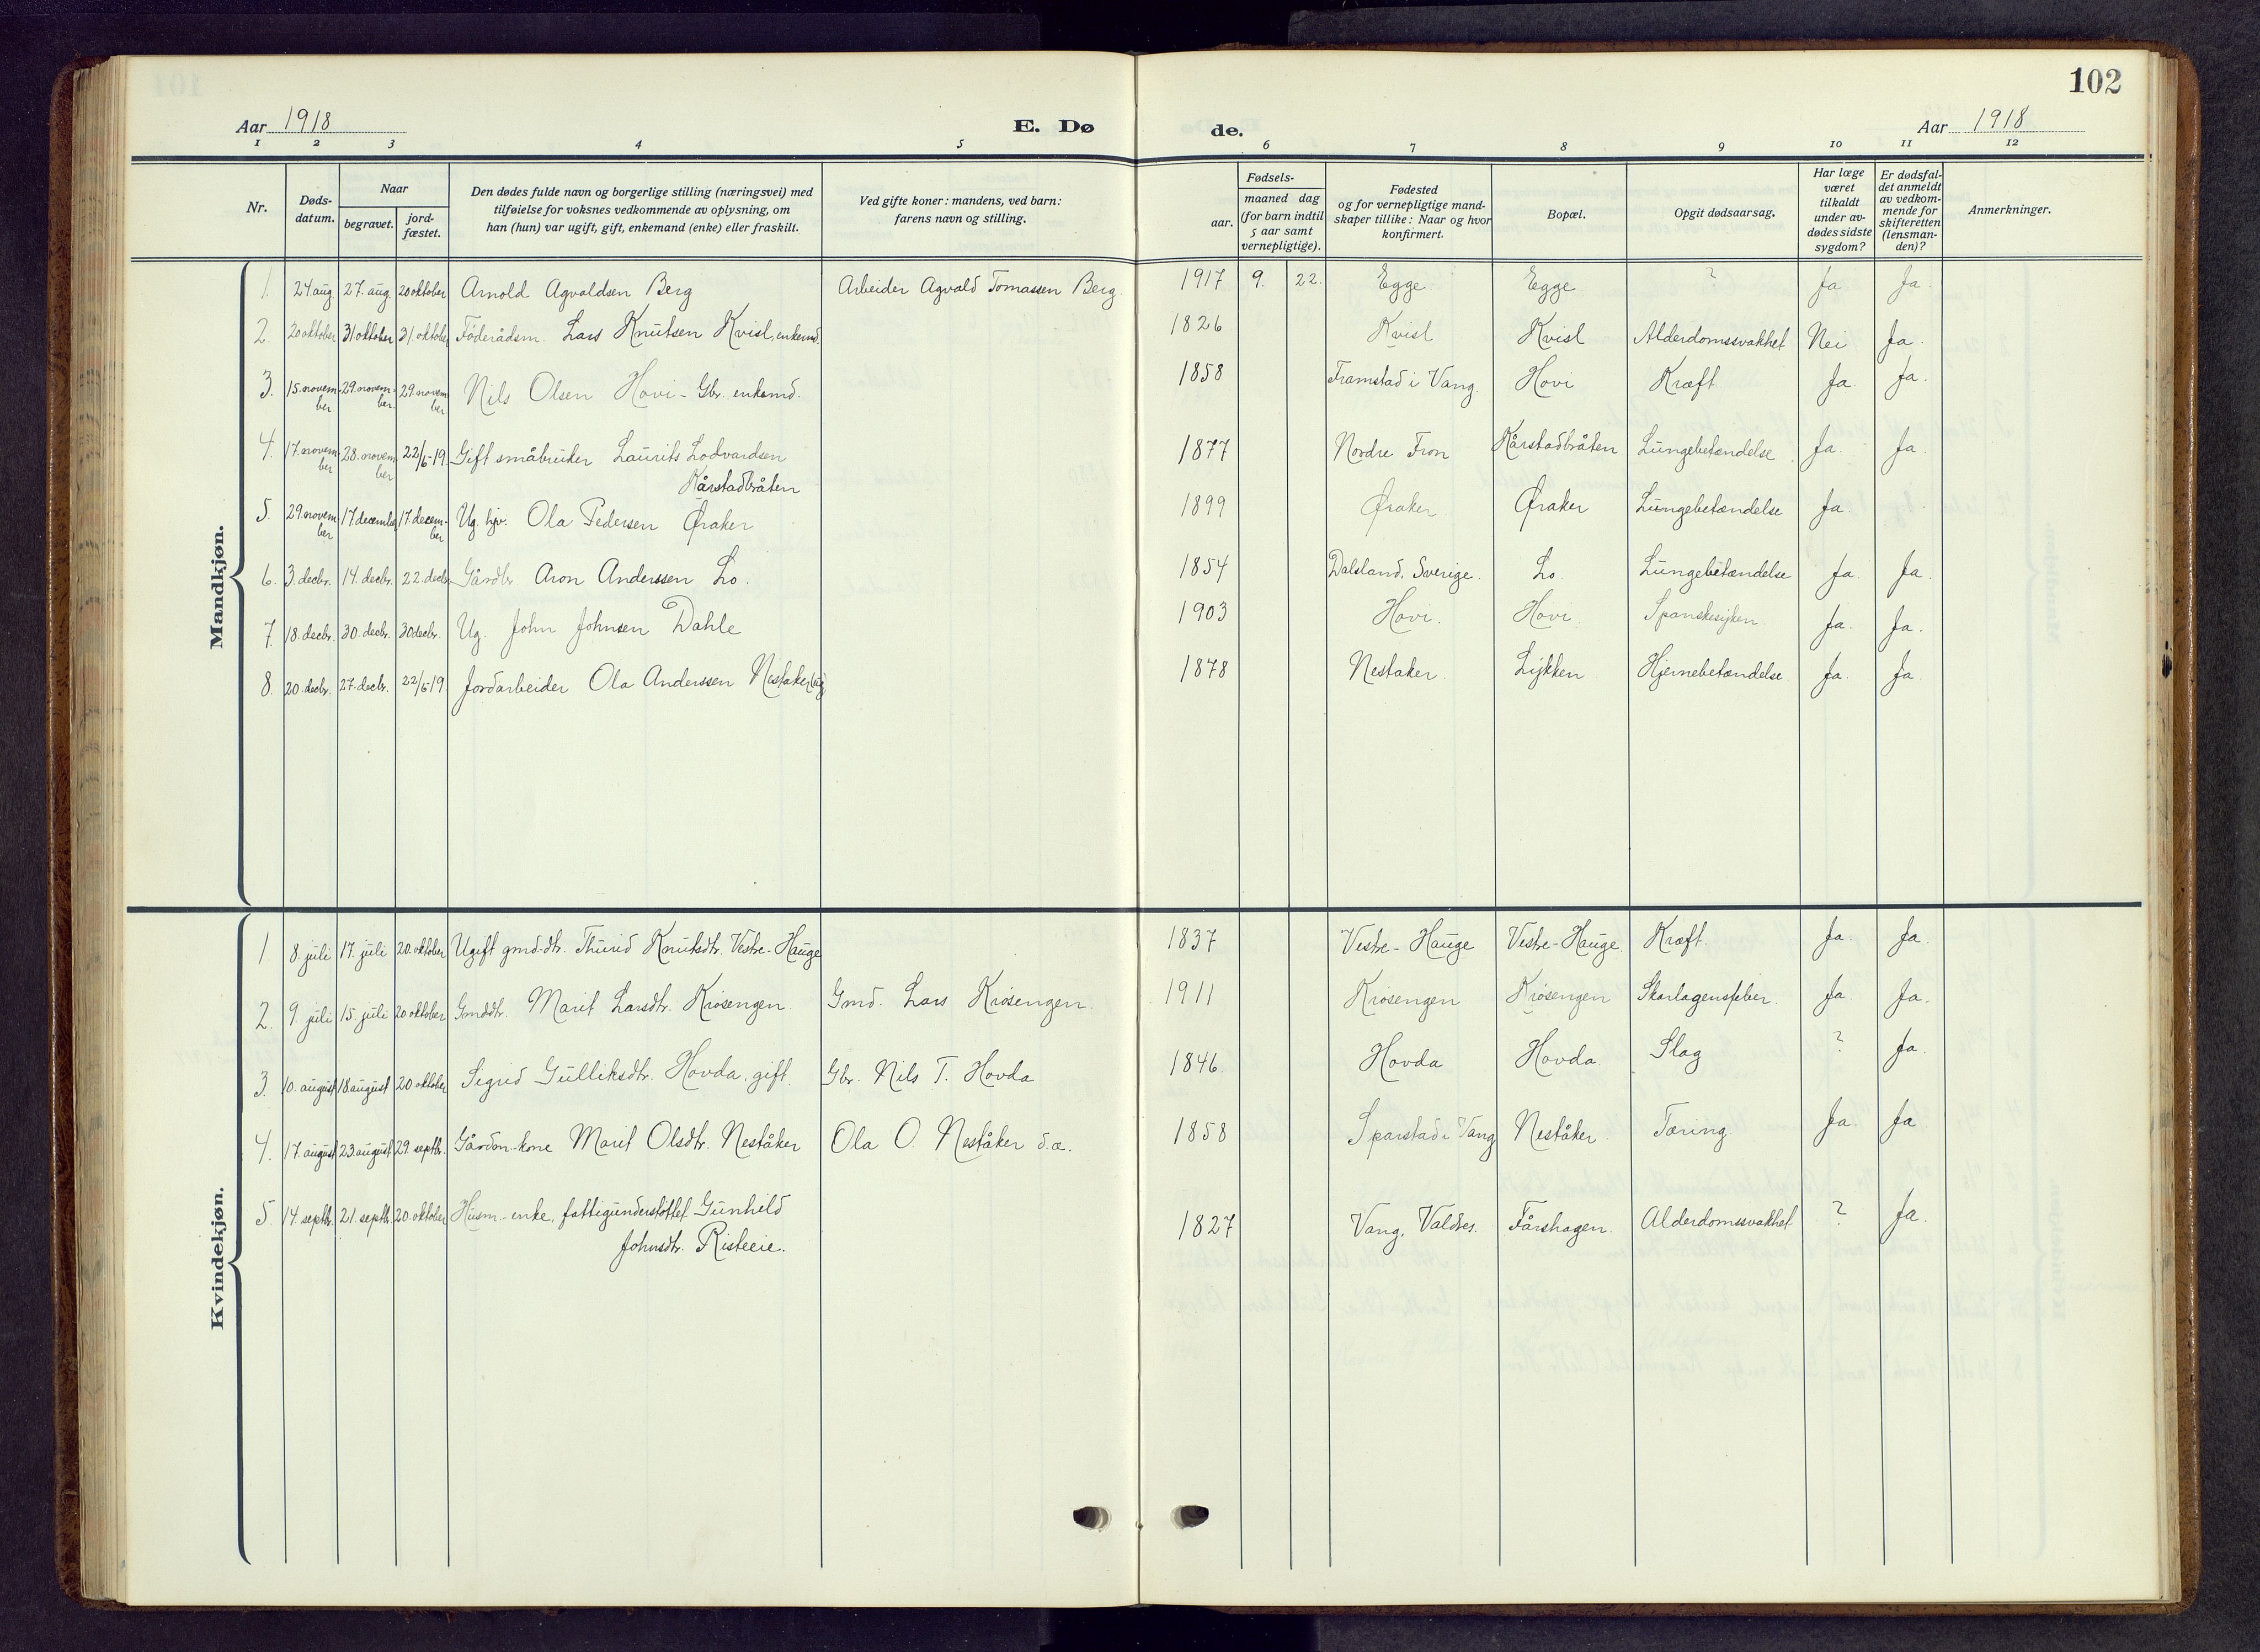 102
Aar 1918 E. Dø de. Aar 1918
1 2 3 4 5 6 7 8 9 10 11 12
Nr.
Døds-
datum.
Naar
begravet.
jord-
fæstet.
Den dødes fulde navn og borgerlige stilling (næringsvei) med
tilføielse for voksnes vedkommende av oplysning, om
han (hun) var ugift, gift, enkemand (enke) eller fraskilt.
Ved gifte koner: mandens, ved barn:
farens navn og stilling.
Fødsels-
aar.
maaned dag
(for barn indtil
5 aar samt
vernepligtige).
Fødested
og for vernepligtige mand-
skaper tillike: Naar og hvor
konfirmert.
Bopæl.
Opgit dødsaarsag.
Har læge
været
tilkaldt
under av-
dødes sidste
sygdom?
Er dødsfal-
det anmeldt
av vedkom-
mende for
skifteretten
(lensman-
den)?
Anmerkninger.
Mandkjøn.
1. 24 aug. 27. aug. 20 oktober Arnold Agvaldsen Berg Arbeider Agvald Tomassen Berg. 1917 9. 22. Egge Egge ? Ja Ja.
2. 20 oktober 31 oktober 31. oktober Føderådsm. Lars Knutsen Kvisl, enkemd. 1826 Kvisl Kvisl Alderdomssvakhet Nei Ja.
3. 15. novem- 29. novem- 29. novem- Nils Olsen Hovi - Gbr. enkemd. 1858 Framstad i Vang. Hovi Kræft Ja. Ja.
ber ber. ber
4. 17. novem- 28. novem- 22/6-19. Gift småbruker Laurits Lodvardsen 1877 Nordre Fron Kårstadbråten Lungebetændelse Ja. Ja.
ber ber Kårstadbråten
5. 29 novem- 17 december 17. decem- Ug. hjv. Ola Pedersen Øraker 1899 Øraker Øraker Lungebetændelse Ja
ber ber
6. 3. decbr. 14. decbr. 22. decbr. Gårdbr. Aron Anderssen Lo. 1854 Dalsland, Sverige. Lo Lungebetændelse Ja. Ja.
7. 18. decbr. 30. decbr. 30 decbr. Ug. John Johnsen Dahle 1903 Hovi. Hovi Spanskesyken Ja. Ja.
8. 20. decbr. 27. decbr. 22/6-19. Jordarbeider Ola Anderssen Nestaker (ug) 1878 Nestaker Lykken Hjernebetændelse. Ja. Ja.
Kvindekjøn.
1. 8. juli 17. juli 20. oktober Ugift gmd.dtr. Thurid Knutsdtr. Vestre-Hauge 1837 Vestre-Hauge Vestre-Hauge. Kræft. Ja. Ja.
2. 9. juli 15. juli 20 oktober Gmddtr. Marit Larsdtr. Krøsengen Gmd. Lars Krøsengen. 1911 Krøsengen Krøsengen Skarlagensfeber. Ja. Ja.
3. 10. august 18. august 20 oktober Sigrid Gulliksdtr. Hovda, gift. Gbr. Nils T. Hovda 1846. Hovda Hovda. Slag ? Ja.
4. 17. august 23 august 29. septbr. Gårdm.-kone Marit Olsdtr. Neståker Ola O. Neståker d.æ. 1858 Sparstad i Vang Neståker. Tæring Ja. Ja
5. 14. septbr. 21. septbr. 20. oktober Husm.-enke, fattigunderstøttet Gunhild 1827 Vang, Valdres. Fårshagen. Alderdomssvakhet ? Ja.
Johnsdtr. Risteeie.